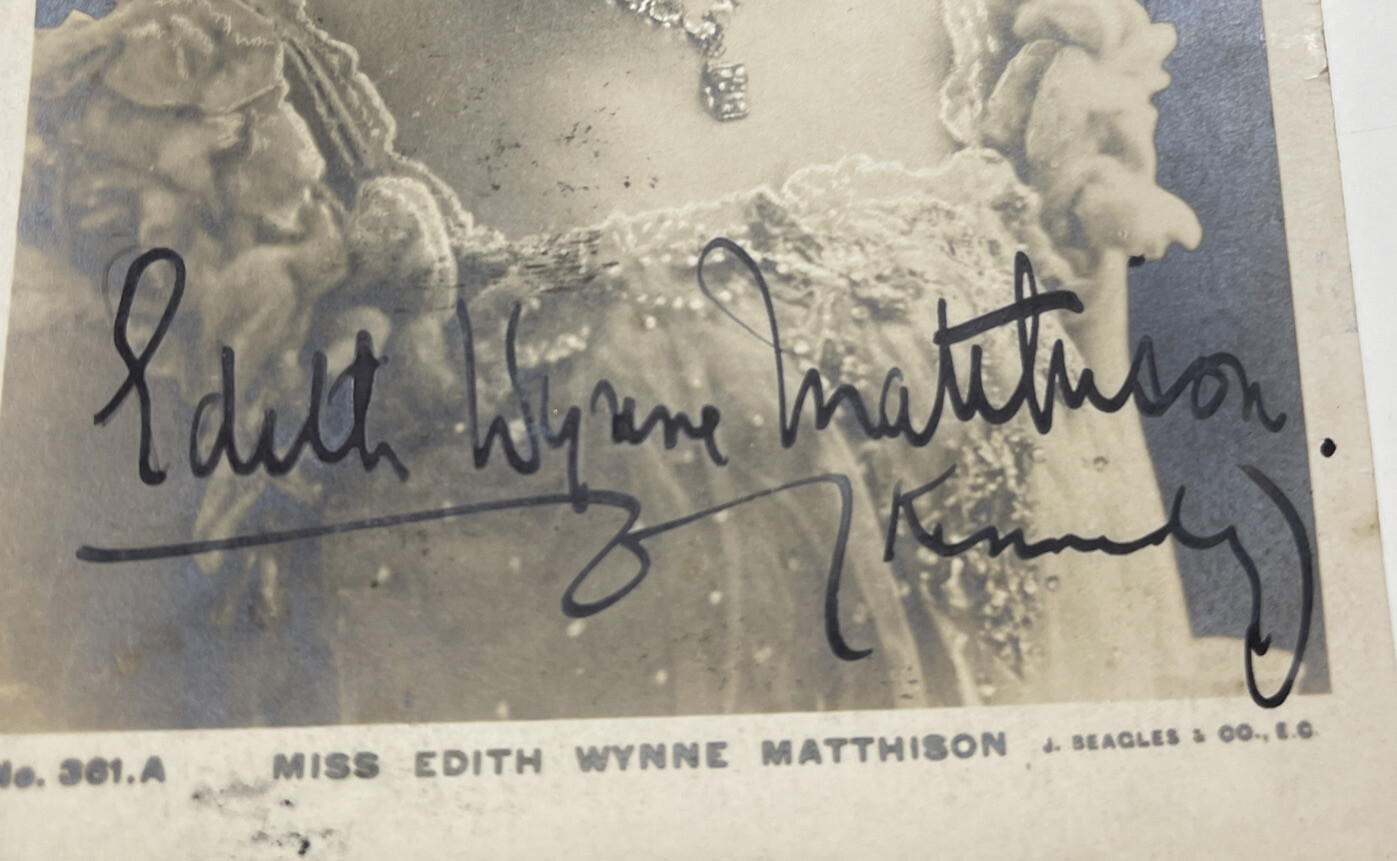 Edith Wynne Matthison.
(Kennedy)
No. 361.A MISS EDITH WYNNE MATTHISON J. BEAGLES & CO., E.C.